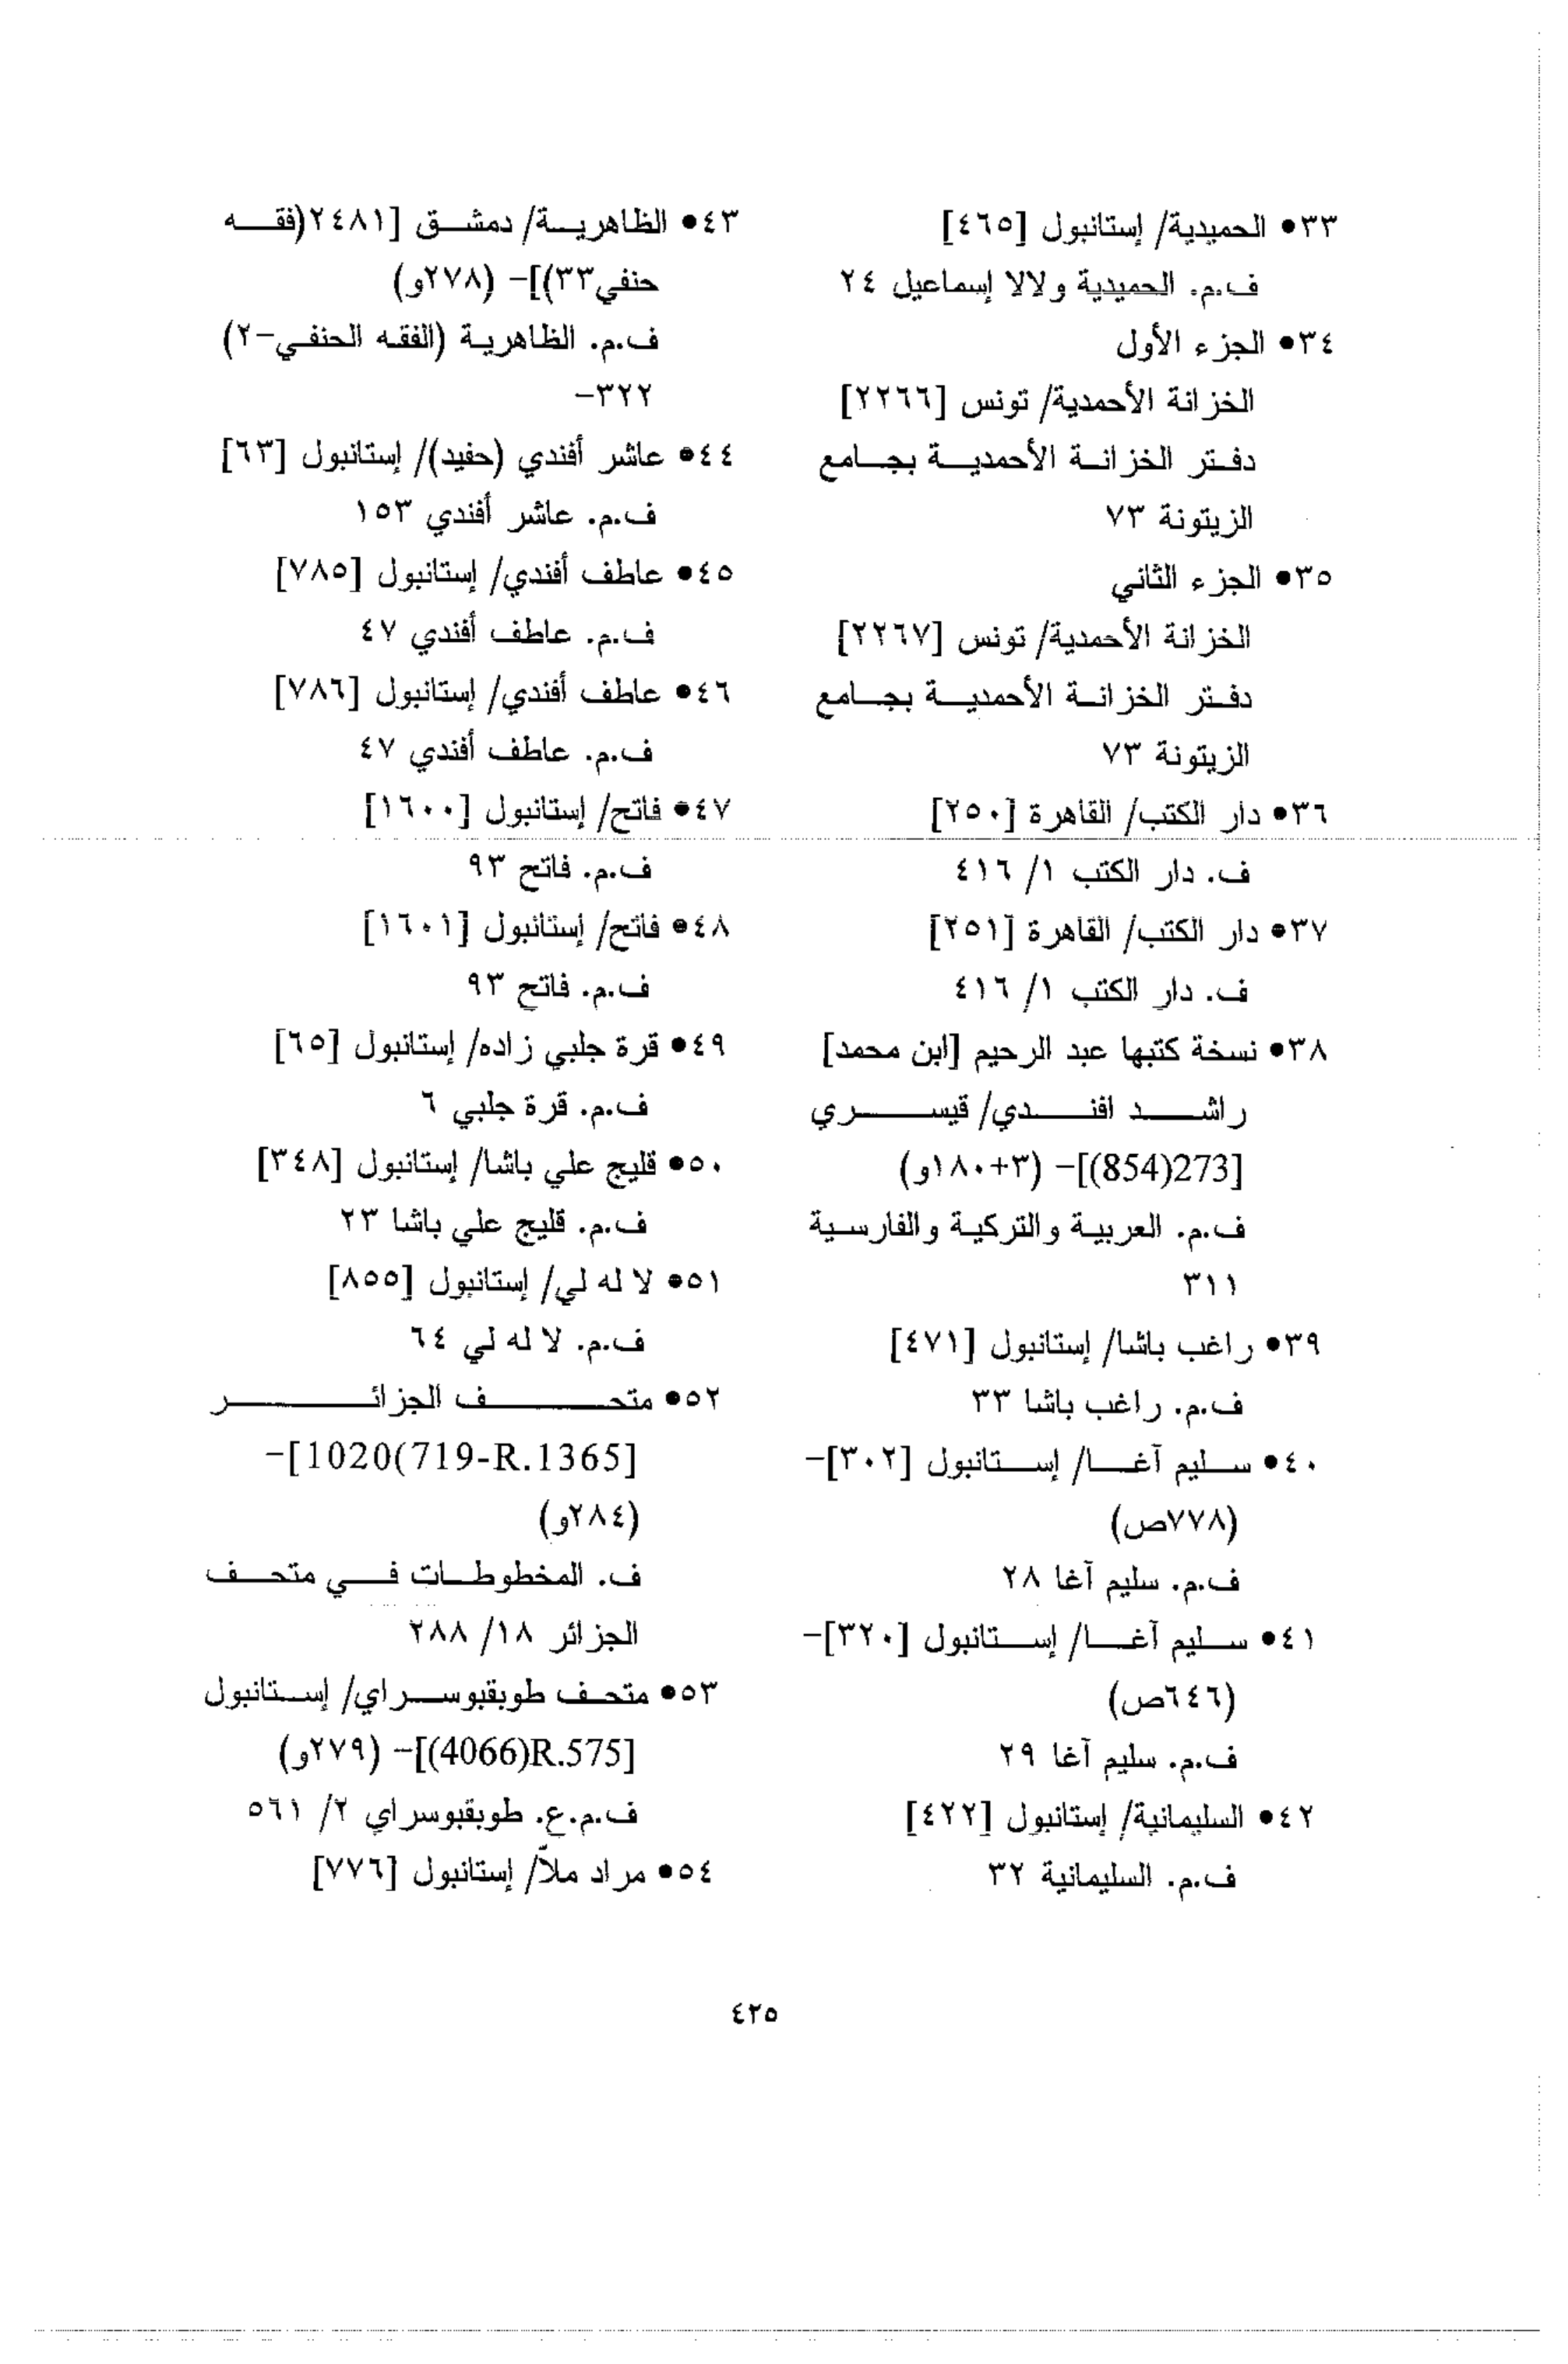 ٣٣• الحميدية/ إستانبول [٤٦٥]
ف.م. الحميدية ولالا إسماعيل ٢٤
٣٤• الجزء الأول
الخزانة الأحمدية/ تونس [٢٢٦٦]
دفتر الخزانة الأحمدية بجامع
الزيتونة ٧٣
٣٥• الجزء الثاني
الخزانة الأحمدية/ تونس [٢٢٦٧]
دفتر الخزانة الأحمدية بجامع
الزيتونة ٧٣
٣٦• دار الكتب/ القاهرة [٢٥٠]
ف. دار الكتب ١/ ٤١٦
٣٧• دار الكتب/ القاهرة [٢٥١]
ف. دار الكتب ١/ ٤١٦
٣٨• نسخة كتبها عبد الرحيم [ابن محمد]
راشد افندي/ قيسري
[273(854)]– (٣+١٨٠و)
ف.م. العربية والتركية والفارسية
٣١١
٣٩• راغب باشا/ إستانبول [٤٧١]
ف.م. راغب باشا ٣٣
٤٠• سليم آغا/ إستانبول [٣٠٢]–
(٧٧٨ص)
ف.م. سليم آغا ٢٨
٤١• سليم آغا/ إستانبول [٣٢٠]–
(٦٤٦ص)
ف.م. سليم آغا ٢٩
٤٢• السليمانية/ إستانبول [٤٢٢]
ف.م. السليمانية ٣٢
٤٣• الظاهرية/ دمشق [٢٤٨١(فقه
حنفي٣٣)]– (٢٧٨و)
ف.م. الظاهرية (الفقه الحنفي–٢)
٣٢٢–
٤٤• عاشر أفندي (حفيد)/ إستانبول [٦٣]
ف.م. عاشر أفندي ١٥٣
٤٥• عاطف أفندي/ إستانبول [٧٨٥]
ف.م. عاطف أفندي ٤٧
٤٦• عاطف أفندي/ إستانبول [٧٨٦]
ف.م. عاطف أفندي ٤٧
٤٧• فاتح/ إستانبول [١٦٠٠]
ف.م. فاتح ٩٣
٤٨• فاتح/ إستانبول [١٦٠١]
ف.م. فاتح ٩٣
٤٩• قرة جلبي زاده/ إستانبول [٦٥]
ف.م. قرة جلبي ٦
٥٠• قليج علي باشا/ إستانبول [٣٤٨]
ف.م. قليج علي باشا ٢٣
٥١• لا له لي/ إستانبول [٨٥٥]
ف.م. لا له لي ٦٤
٥٢• متحف الجزائر
[1020(719-R.1365]–
(٢٨٤و)
ف. المخطوطات في متحف
الجزائر ١٨/ ٢٨٨
٥٣• متحف طوبقبوسراي/ إستانبول
[(4066)R.575]– (٢٧٩و)
ف.م.ع. طوبقبوسراي ٢/ ٥٦١
٥٤• مراد ملاّ/ إستانبول [٧٧٦]
٤٢٥